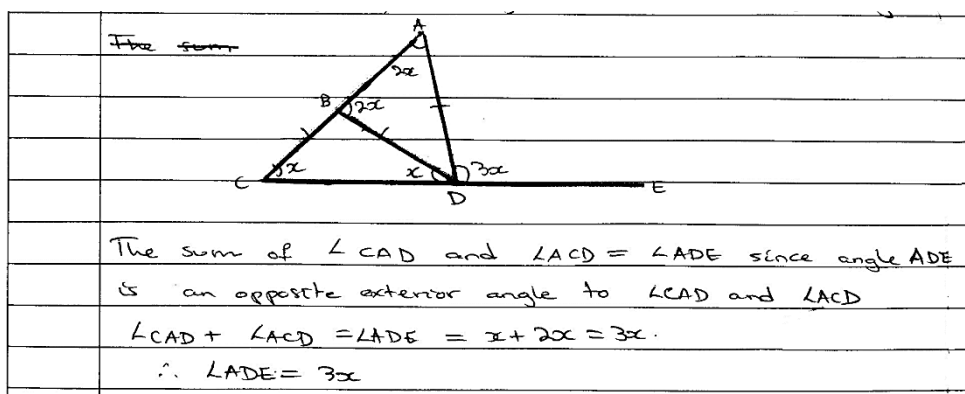 The sum
A
2x
B 2x
x x 3x
C D E
The sum of ∠CAD and ∠ACD = ∠ADE since angle ADE
is an opposite exterior angle to ∠CAD and ∠ACD
∠CAD + ∠ACD = ∠ADE = x + 2x = 3x.
∴ ∠ADE = 3x